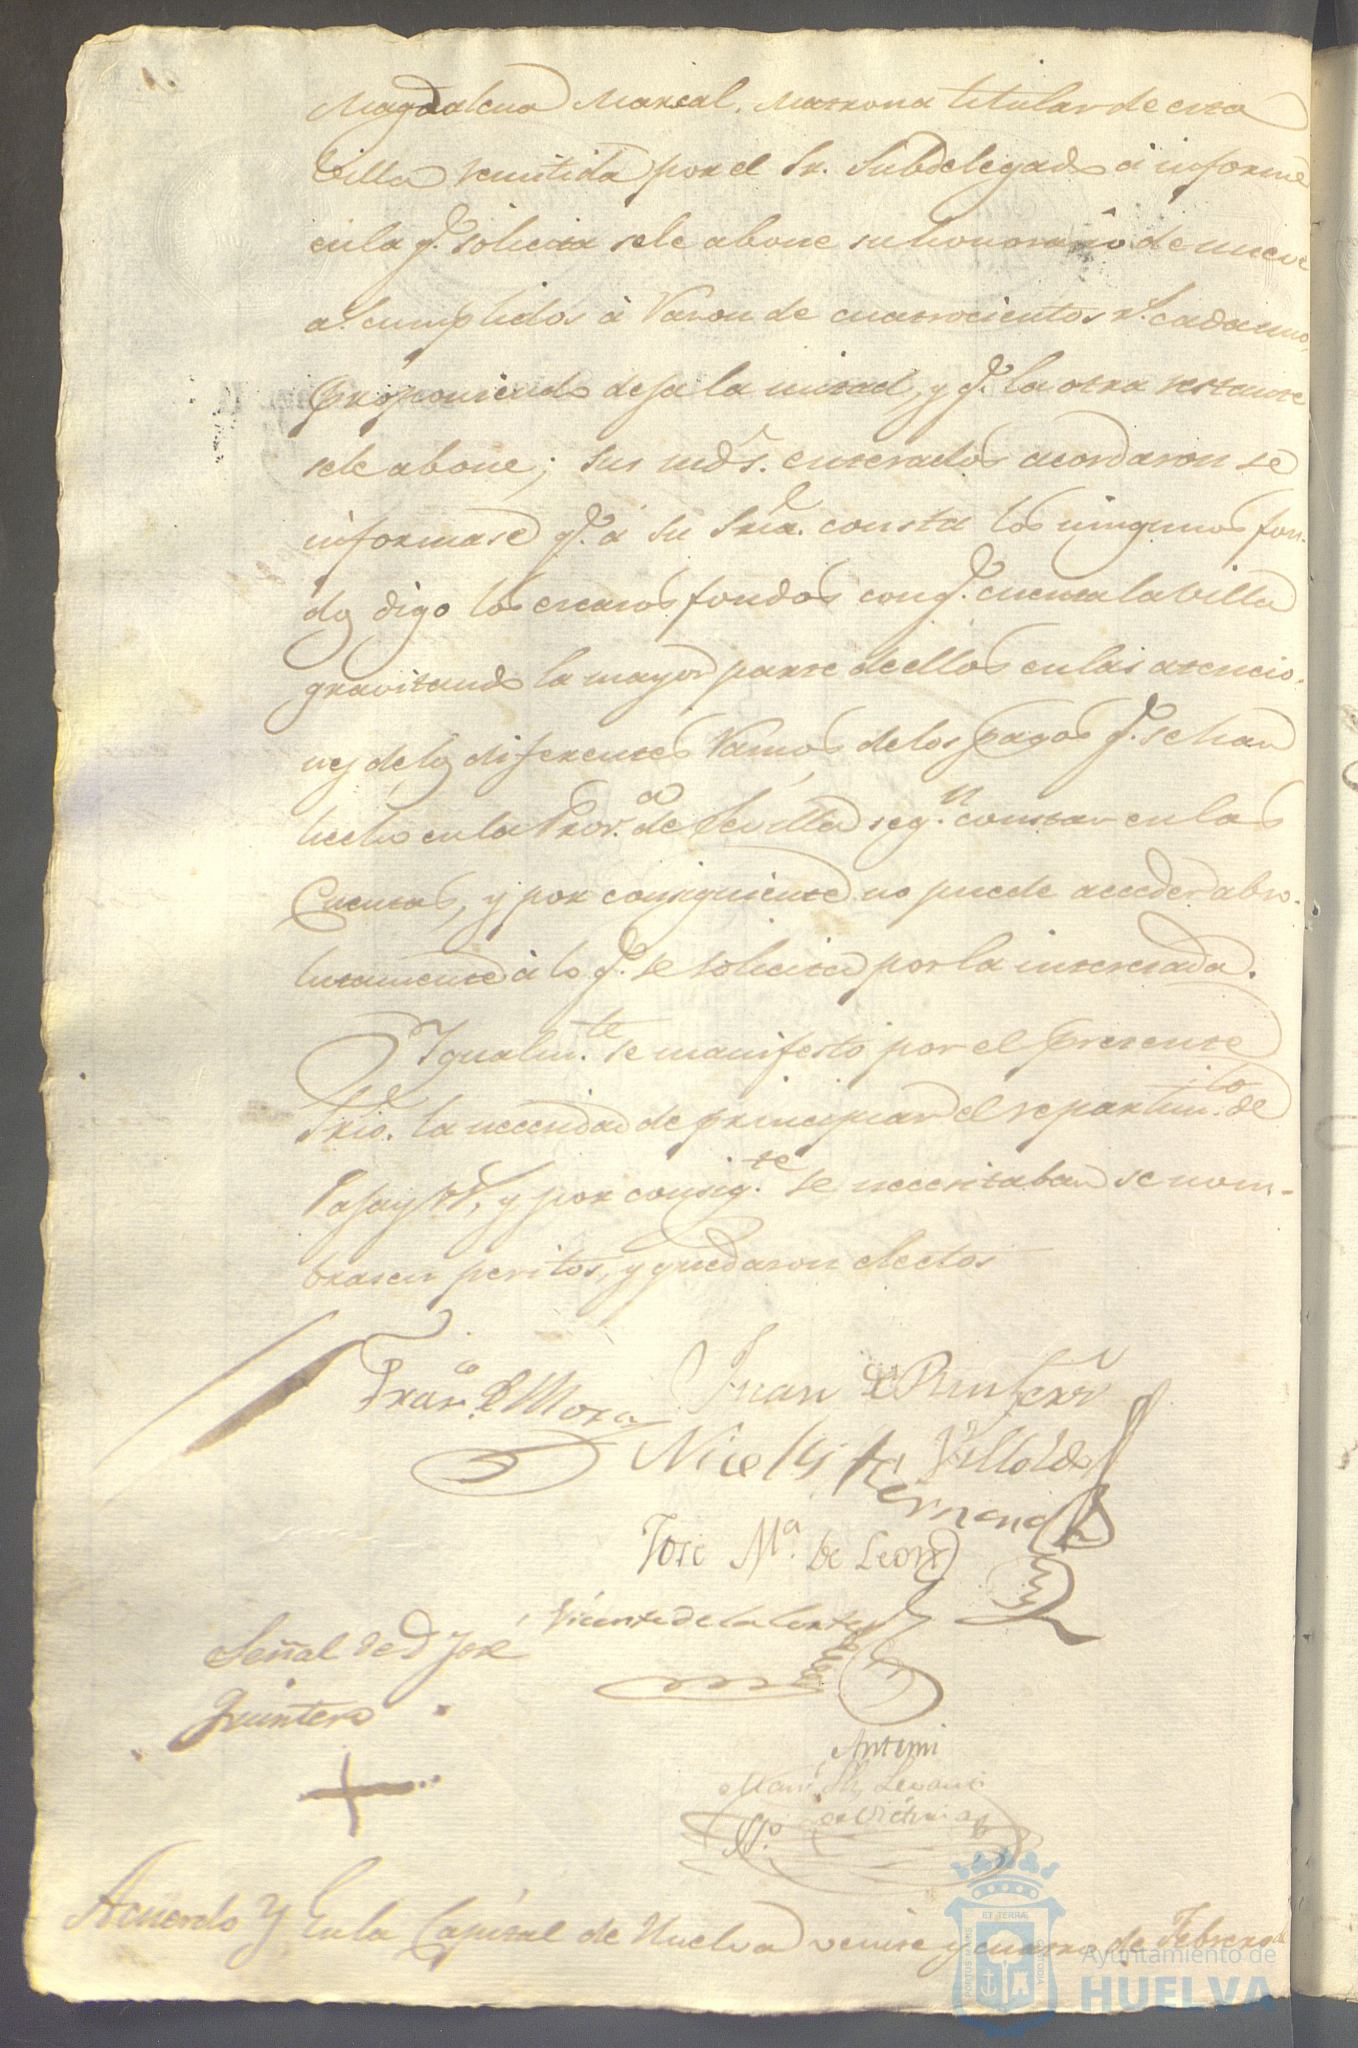 Magdalena Marcal, Matrona titular de esta
Villa remitida por el Sr. Subdelegado á informe
en la q.e solicita se le abone su honorario de nueve
a.s cumplidos à razon de cuatrocientos r.s cada uno,
proponiendo deja la mitad, y q.e la otra restante
se le abone; sus mds. enterados acordaron se
informase q.e à su Sria. consta los ningunos fon-
dos digo los escasos fondos con q.e cuenta la Villa
gravitando la mayor parte de ellos en las atencio-
nes de los diferentes ramos de los pagos q.e se han
hecho en la Prov.a de Sevilla seg.n constan en las
Cuentas, y por consiguiente no puede acceder abso-
lutamente à lo q.e se solicita por la interesada.
Igualm.te se manifesto por el presente
Srio. la necesidad de principiar el repartim.to de
Paja y , y por consig.te se necesitaban se nom-
brasen peritos, y quedaron electos
Fran.co de Mora
Juan
Nicolas Fernand
Villoldo
Jose M.a de Leon
Vicente de la Corte
Señal de D Jose
Quintero
Antemi
S.no
Acuerdo
En la Capital de Huelva veinte y cuatro de Febrero de
ET TERRÆ
PORTUS MARIS
CUSTODIA
Ayuntamiento de
HUELVA